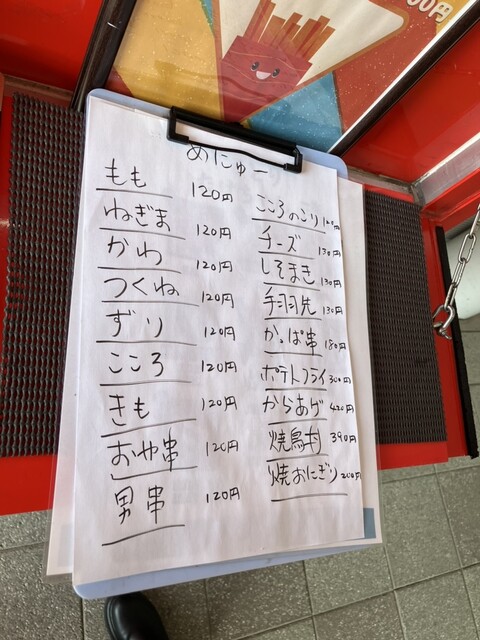 00円
めにゅー
もも 120円
ねぎま 120円
かわ 120円
つくね 120円
ずり 120円
こころ 120円
きも 120円
おや串 120円
男串 120円
こころのこり
チーズ 130円
しそまき 130円
手羽先 130円
かっぱ串 180円
ポテトフライ 300円
からあげ 420円
焼鳥丼 390円
焼おにぎり 200円